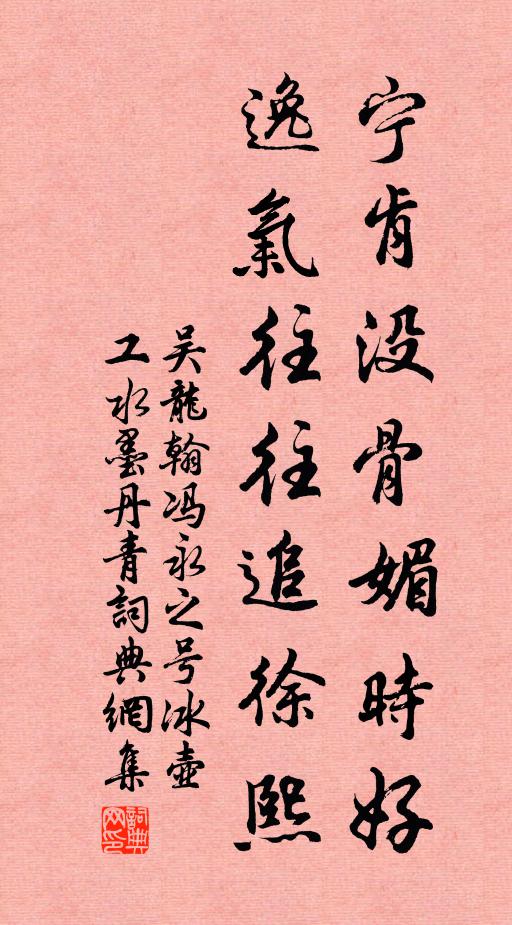 宁肯没骨媚時好
逸氣往往追徐熙
吴龍翰冯永之号冰壺
工水墨丹青詞典網集
詞典网印